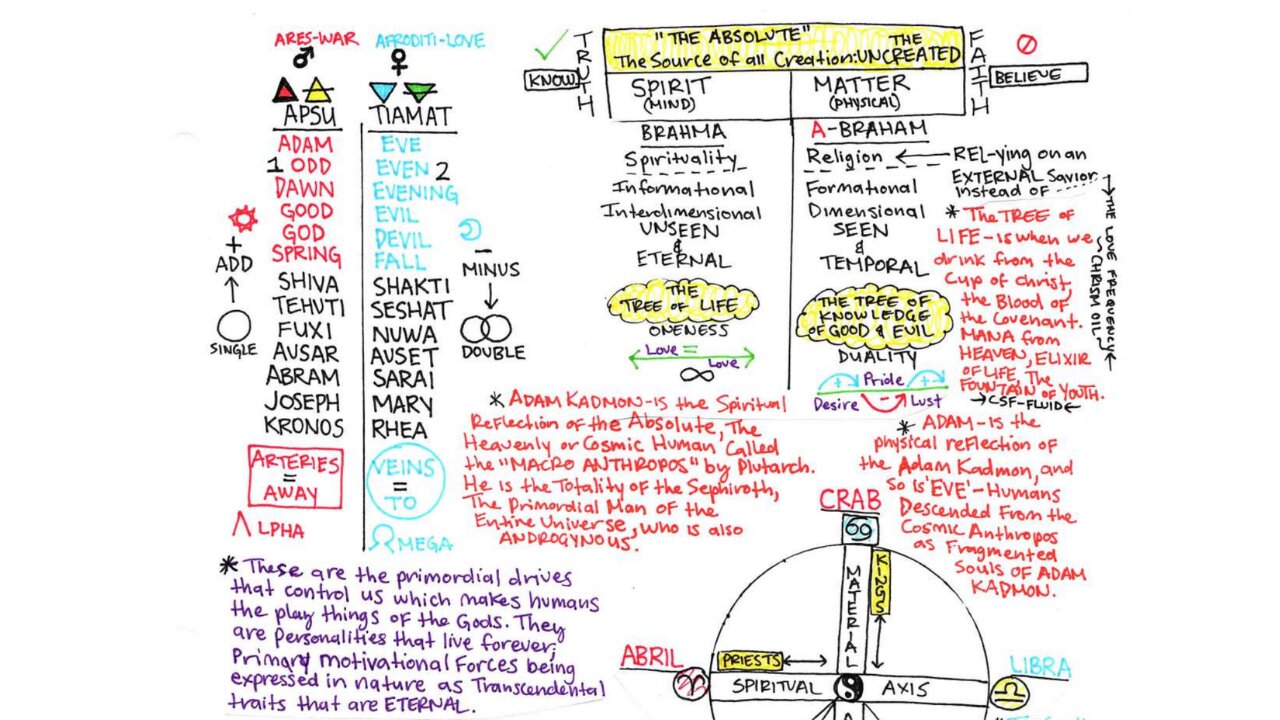 ARES-WAR
AFRODITI-LOVE
APSU
TIAMAT
ADAM
EVE
1 ODD
EVEN 2
DAWN
EVENING
GOOD
EVIL
GOD
DEVIL
SPRING
FALL
SHIVA
SHAKTI
TEHUTI
SESHAT
FUXI
NUWA
AUSAR
AUSET
ABRAM
SARAI
JOSEPH
MARY
KRONOS
RHEA
+
ADD
SINGLE
−
MINUS
DOUBLE
ARTERIES
=
AWAY
VEINS
=
TO
ΛLPHA
ΩMEGA
* These are the primordial drives
that control us which makes humans
the play things of the Gods. They
are personalities that live forever;
Primary motivational Forces being
expressed in nature as Transcendental
traits that are ETERNAL.
KNOW
TRUTH
"THE ABSOLUTE" THE
The Source of all Creation:UNCREATED
FAITH
BELIEVE
SPIRIT
(MIND)
MATTER
(PHYSICAL)
BRAHMA
Spirituality
Informational
Interdimensional
UNSEEN
&
ETERNAL
THE
TREE OF LIFE
ONENESS
Love =
Love
∞
A-BRAHAM
Religion
Formational
Dimensional
SEEN
&
TEMPORAL
THE TREE OF
KNOWLEDGE
OF GOOD & EVIL
DUALITY
+ Pride +
Desire − Lust
REL-ying on an
EXTERNAL Savior
instead of
* The TREE of
LIFE-is when we
drink from the
Cup of Christ,
the Blood of
the Covenant.
MANA from
HEAVEN, ELIXIR
OF LIFE, The
FOUNTAIN OF YOUTH.
CSF-FLUID
THE LOVE FREQUENCY
CHRISM OIL
* ADAM KADMON-is the Spiritual
Reflection of the Absolute, The
Heavenly or Cosmic Human Called
the "MACRO ANTHROPOS" by Plutarch.
He is the Totality of the Sephiroth,
The Primordial Man of the
Entire Universe, who is also
ANDROGYNOUS.
* ADAM-is the
physical reflection of
the Adam Kadmon, and
so is 'EVE'-Humans
Descended From the
Cosmic Anthropos
as Fragmented
Souls of ADAM
KADMON.
CRAB
MATERIAL
KINGS
ABRIL
PRIESTS
SPIRITUAL
AXIS
LIBRA